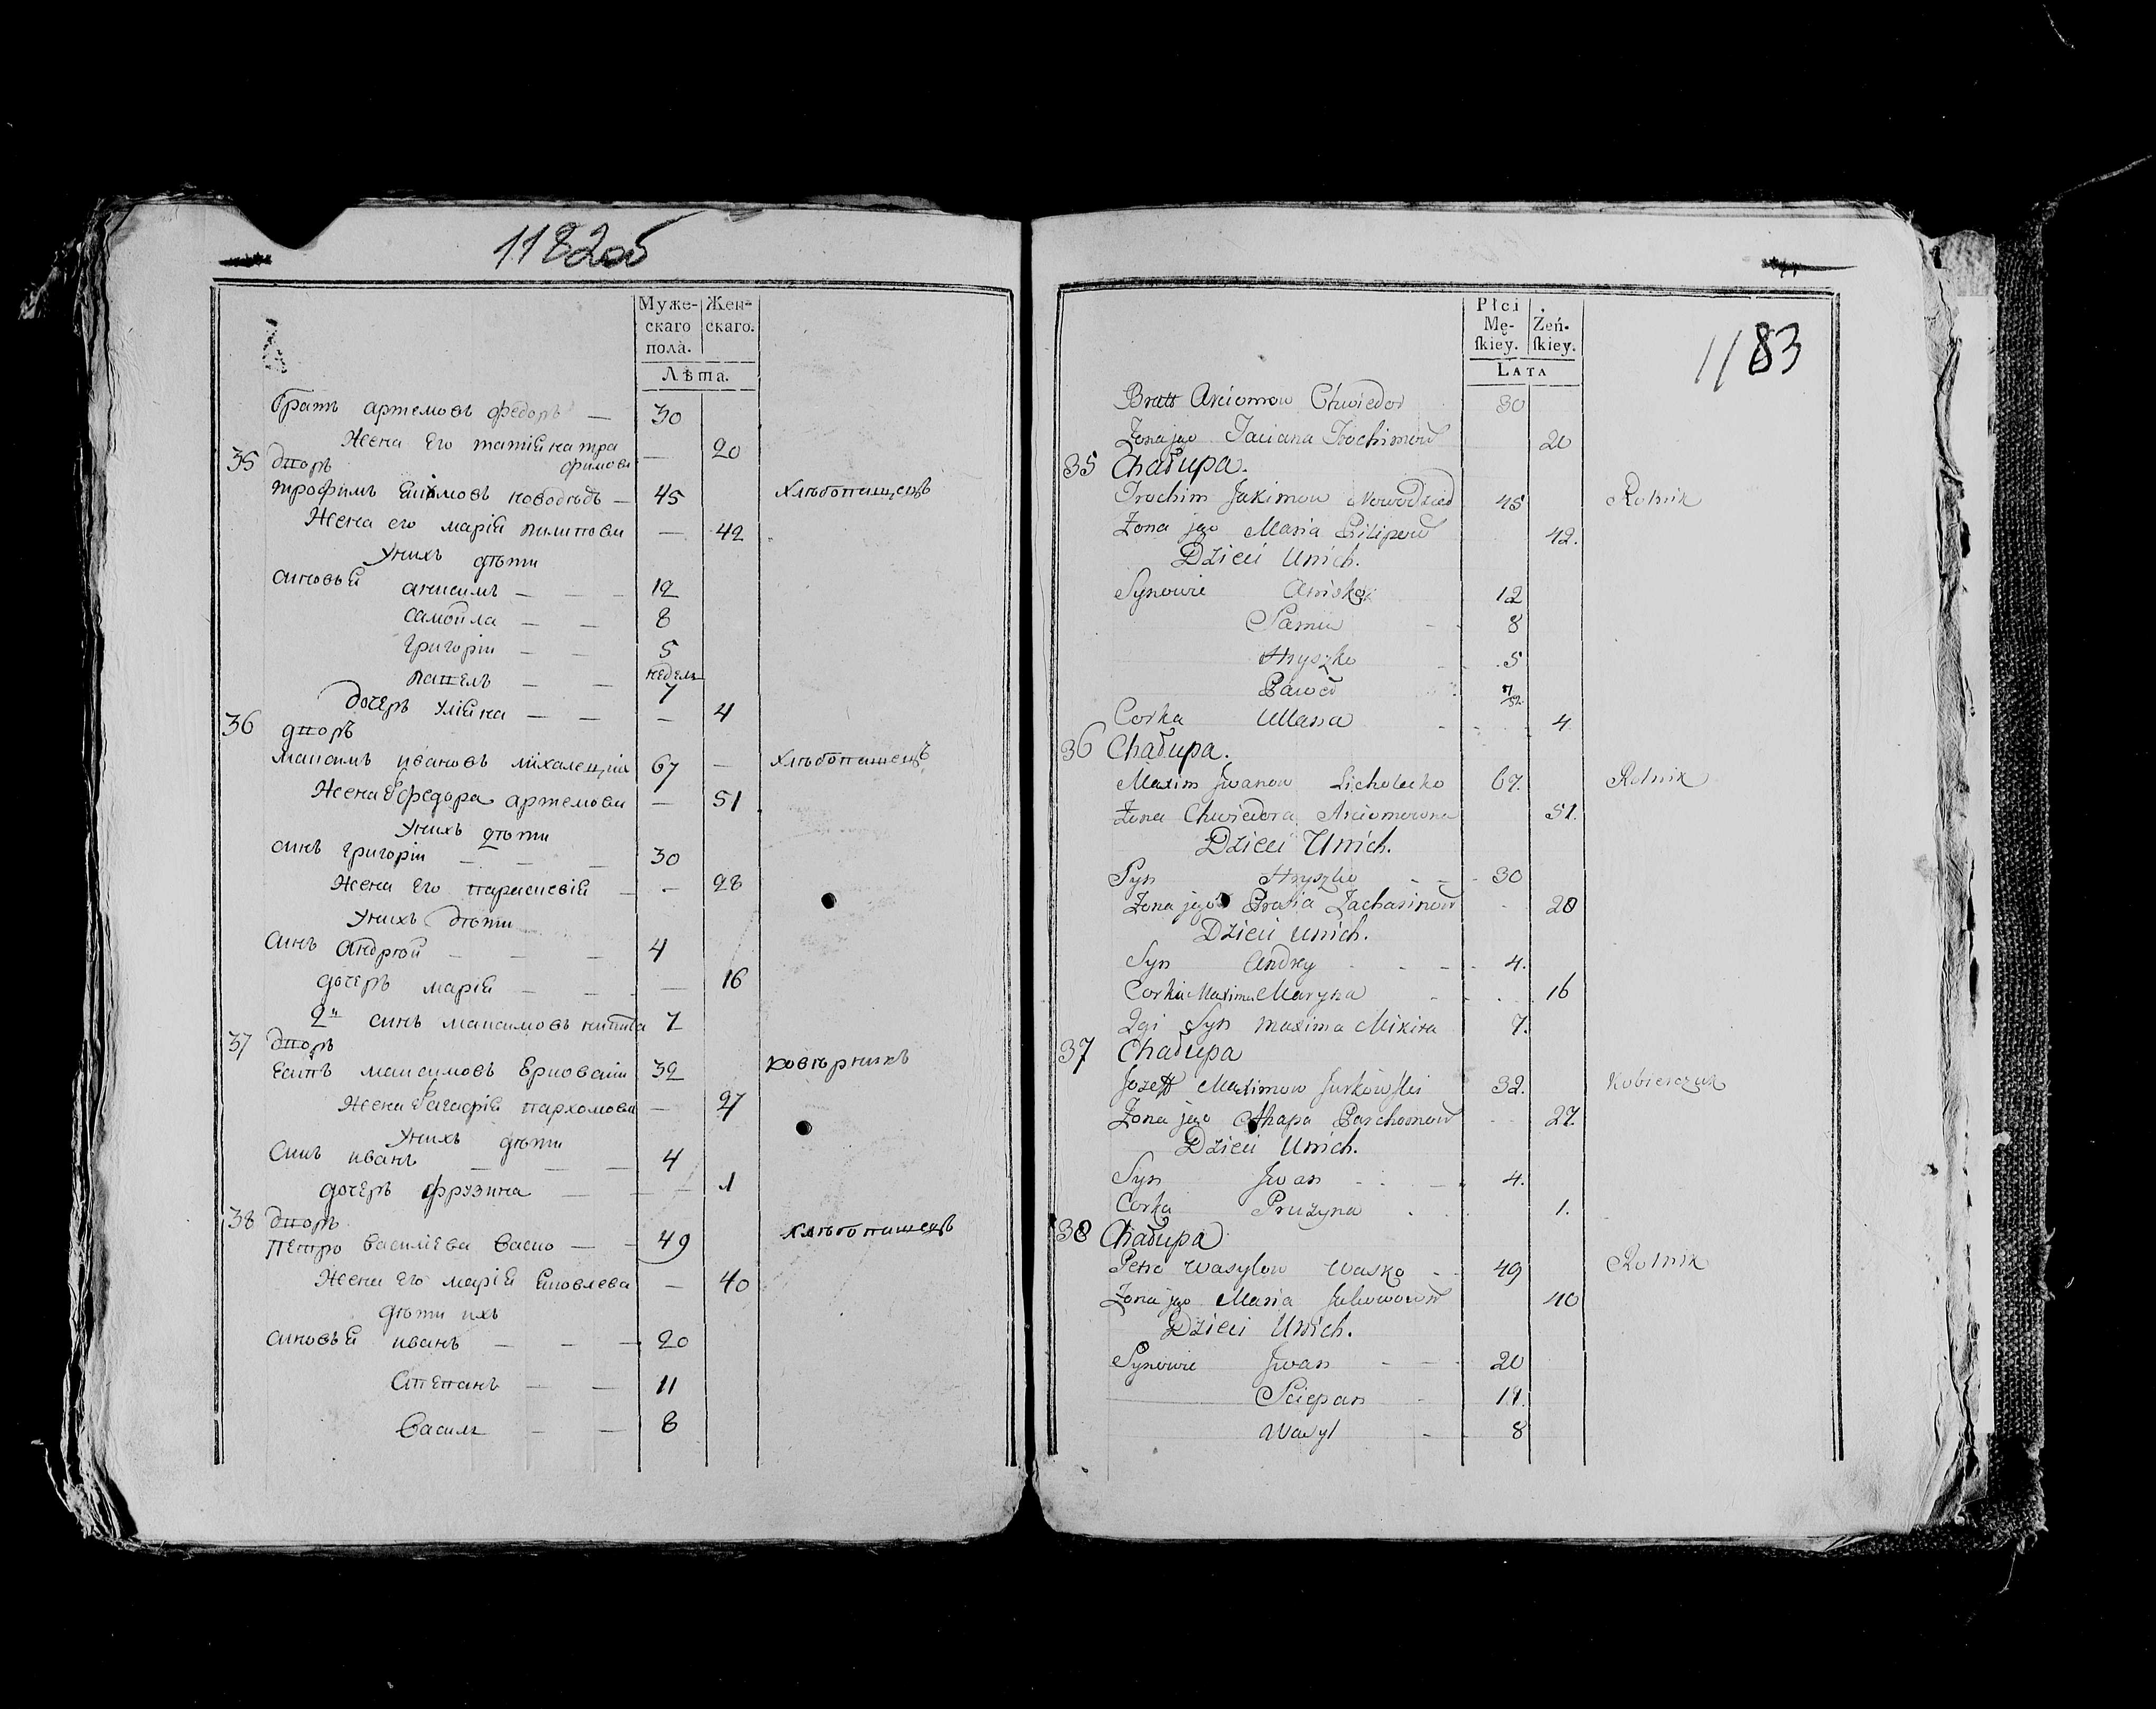 1182об
Муже-
скаго
пола.
Жен-
скаго.
Лѣта.
братъ артемовъ федоръ — 30
Жена Его татіана тра
фимова — 20
35 дворъ
трофимъ новодѣдъ — 45 Хлѣбопашецъ
Жена его маріа пилипова — 42
Унихъ дѣти
синовьа анисимъ — — — 12
самойла — — 8
григорій — — 5
павелъ — — недель 7
дочеръ уліана — — — 4
36 дворъ
максимъ ивановъ 67 — Хлѣбопашецъ
Жена федора артемова — 51
Унихъ дѣти
синъ григорій — — — 30
Жена Его параскевіа — — 28
Унихъ дѣти
Синъ андрюй — — — 4
дочеръ маріа — — — 16
2й синъ максимовъ никита 7
37 дворъ
максимовъ 32
Жена пархомова — 27
Унихъ дѣти
Синъ иванъ — — — 4
дочеръ фрузина — — — 1
38 дворъ
Петро василіева васко — — 49 Хлѣбопашецъ
Жена Его маріа Яковлева — 40
дѣти ихъ
синовьа иванъ — — — 20
Степанъ — — 11
василь — — 8
1183
Płci
Mę-
ſkiey.
Żeń-
ſkiey.
LATA
Bratt Arciomow Chwiedor 30
Żona jego Taciana Trochimow 20
35 Chałupa.
Trochim Jakimow Nowodzied 45 Rolnik
Żona jego Maria Pilipow 42.
Dzieci Unich.
Synowie Anisko 12
Samu - - 8
Hryszko .5
Paweł 7/52
Corka Ullana 4
36 Chałupa.
Maxim Jwanow Licholecko 67. Rolnik
Żona Chwiedora Arciomowna 51.
Dzieci Unich.
Syn Hryszko - - - 30
Żona jego Prasia Zacharinow - 28
Dzieci Unich.
Syn Andrey - - - 4.
Corka Maxima Maryna 16
2gi Syn Maxima Mikita 7.
37 Chałupa
Jozeff Maximow Jurkowski 32. Kobierczuk
Żona jego Ahapa Parchomow - - 27.
Dzieci Unich.
Syn Jwan - - - 4.
Corka Pruzyna 1.
38 Chałupa
Petro Wasylow Wasko - - 49 Rolnik
Żona jego Maria Jakowow 40
Dzieci Unich.
Synowie Jwan - - - 20
Sciepan - 11.
Wasyl - - 8